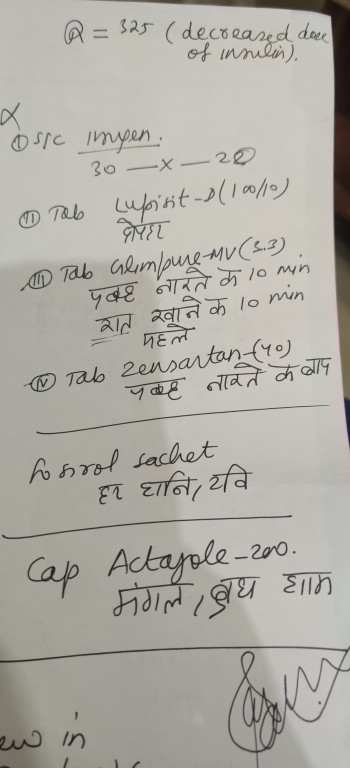 R = 325 (decreased dose
of insulin).
① S/C
30 — x — 20
② Tab Lupisit-D (100/10)
दोपहर
③ Tab Glimpure-MV (2.3)
सुबह नाश्ते के 10 min
रात खाने के 10 min
पहले
④ Tab Zensartan-(40)
सुबह नाश्ते के बाद
sachet
हर शनि, रवि
Cap -200.
मंगल, बुध शाम
in